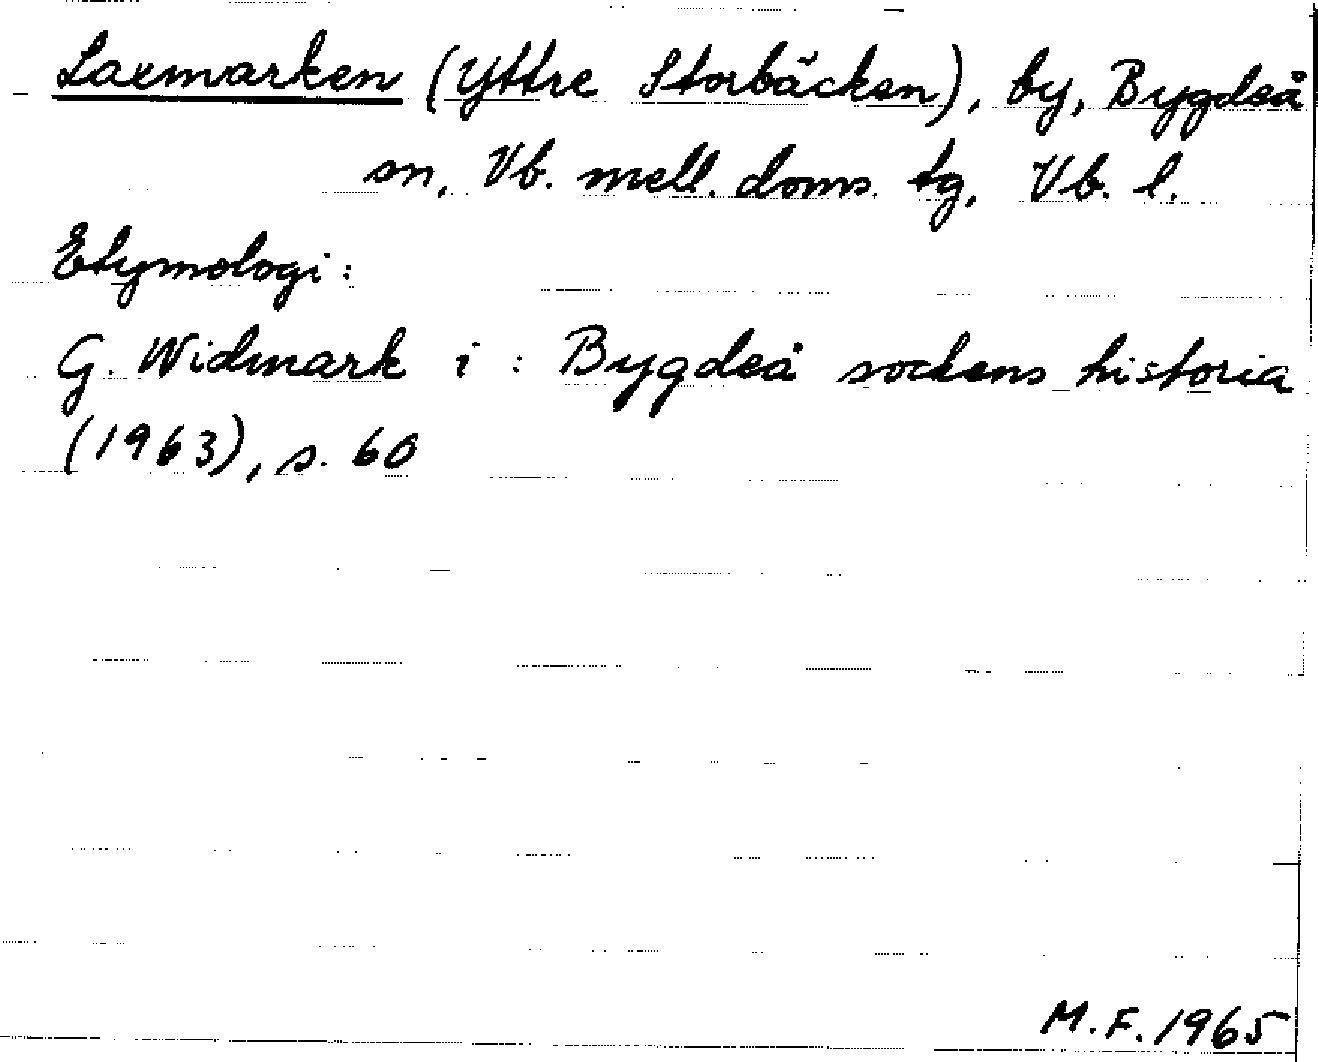 Laxmarken (Yttre Storbäcken), by, Bygdeå
sn, Vb. mell. doms. tg, Vb. l.
Etymologi:
G. Widmark i: Bygdeå sockens historia
(1963), s. 60
M.F. 1965